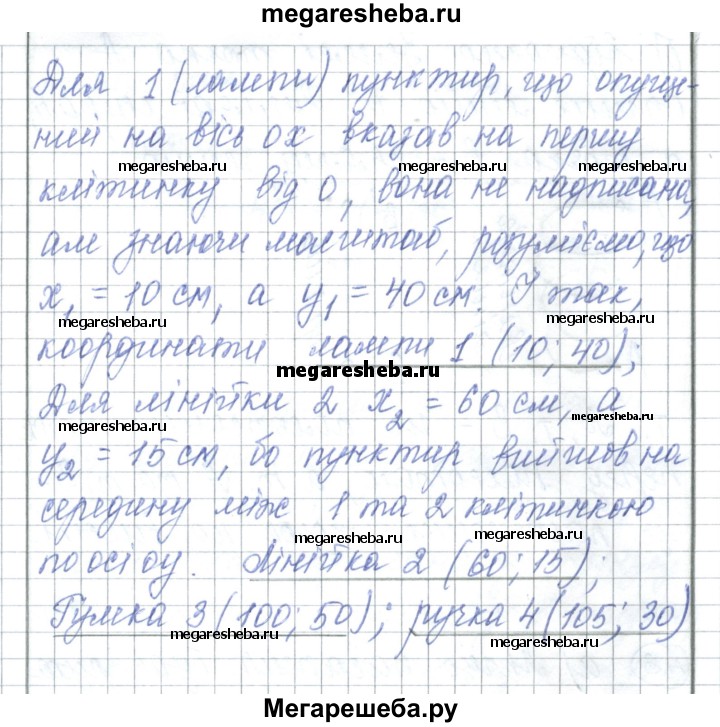 megaresheba.ru
Для 1 (лампи) пунктир, що опуще-
ний на вісь ОХ вказав на першу
megaresheba.ru megaresheba.ru
клітинку від 0, вона не надписана,
але знаючи масштаб, розуміємо, що
x₁ = 10 см, а y₁ = 40 см. І так,
megaresheba.ru megaresheba.ru
координати лампи 1 (10; 40);
megaresheba.ru
Для лінійки 2 x₂ = 60 см, а
megaresheba.ru megaresheba.ru
y₂ = 15 см, бо пунктир вийшов на
середину між 1 та 2 клітинкою
megaresheba.ru megaresheba.ru
по осі оу. Лінійка 2 (60; 15);
Гумка 3 (100; 50); ручка 4 (105; 30)
megaresheba.ru megaresheba.ru
megaresheba.ru
Мегарешеба.ру